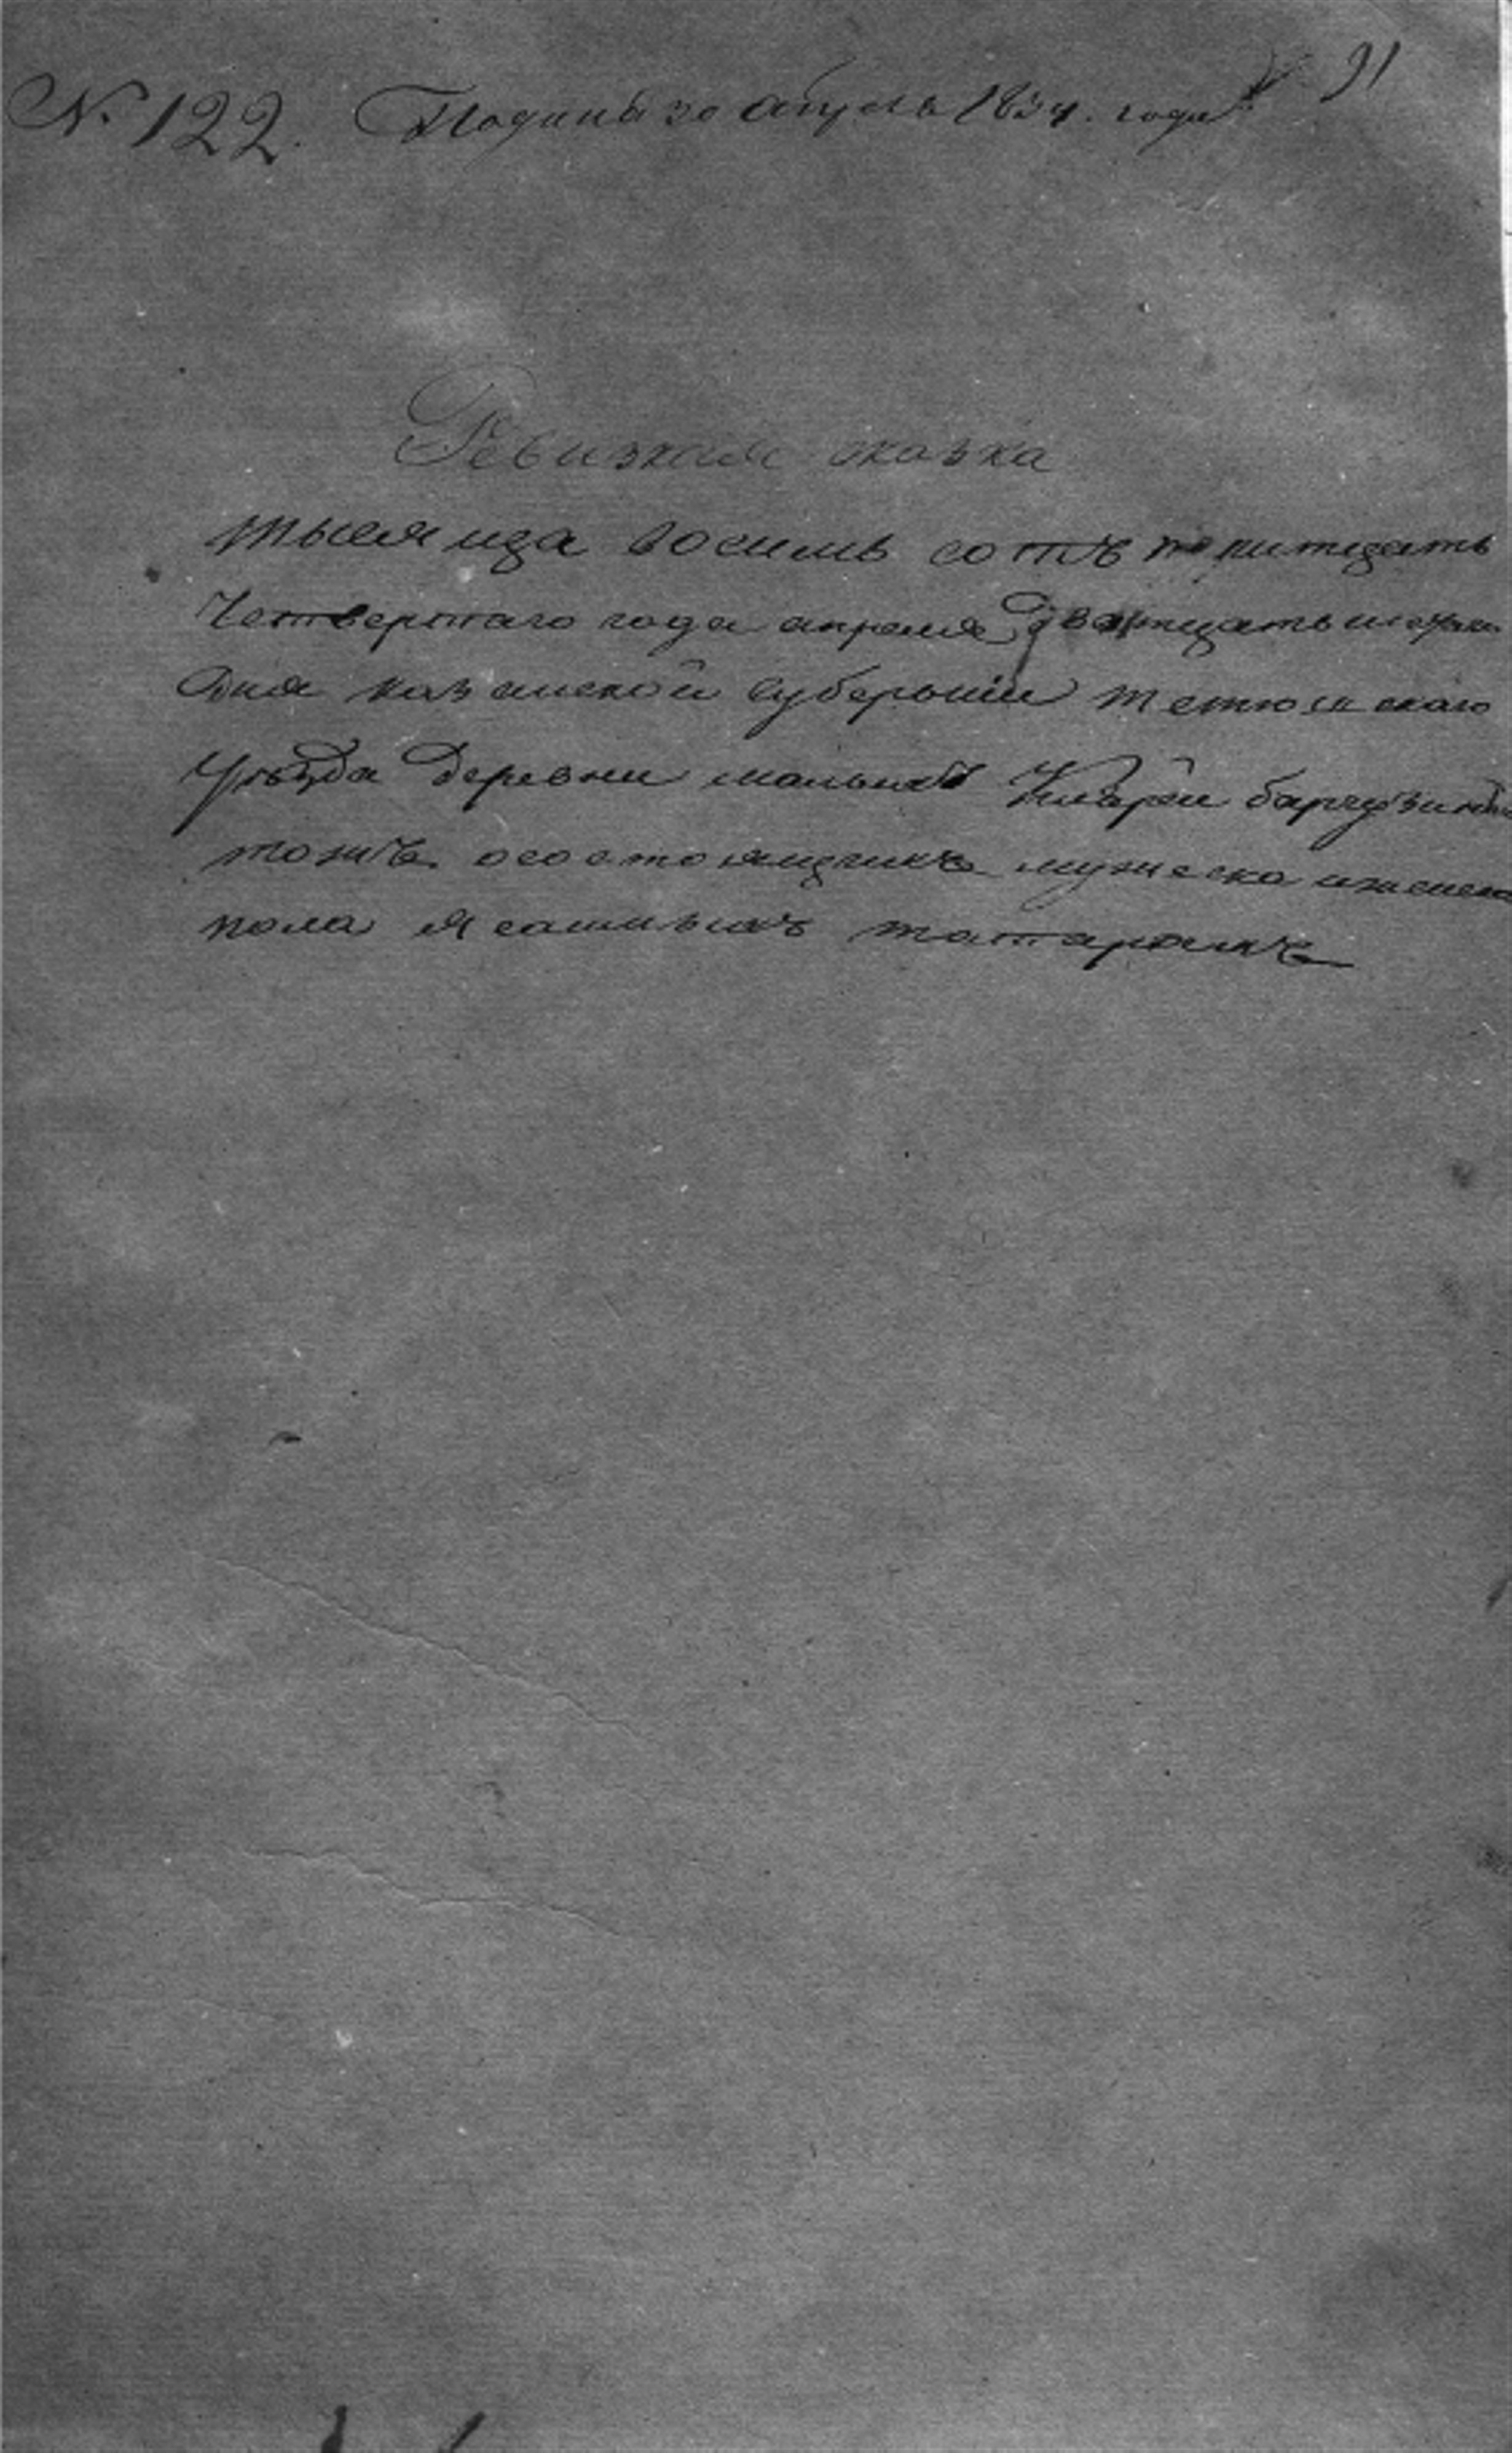 № 122. Подана 30 апреля 1834. года 91
Ревизкая сказка
тысяща восимь сотъ тритцать
Четвертаго года апреля дватцать
Дня казанской губернии тетюшскаго
уѣзда деревни малыхъ барчувинъ
тожъ осостоящихъ мужеска иженска
пола ясашныхъ татарахъ